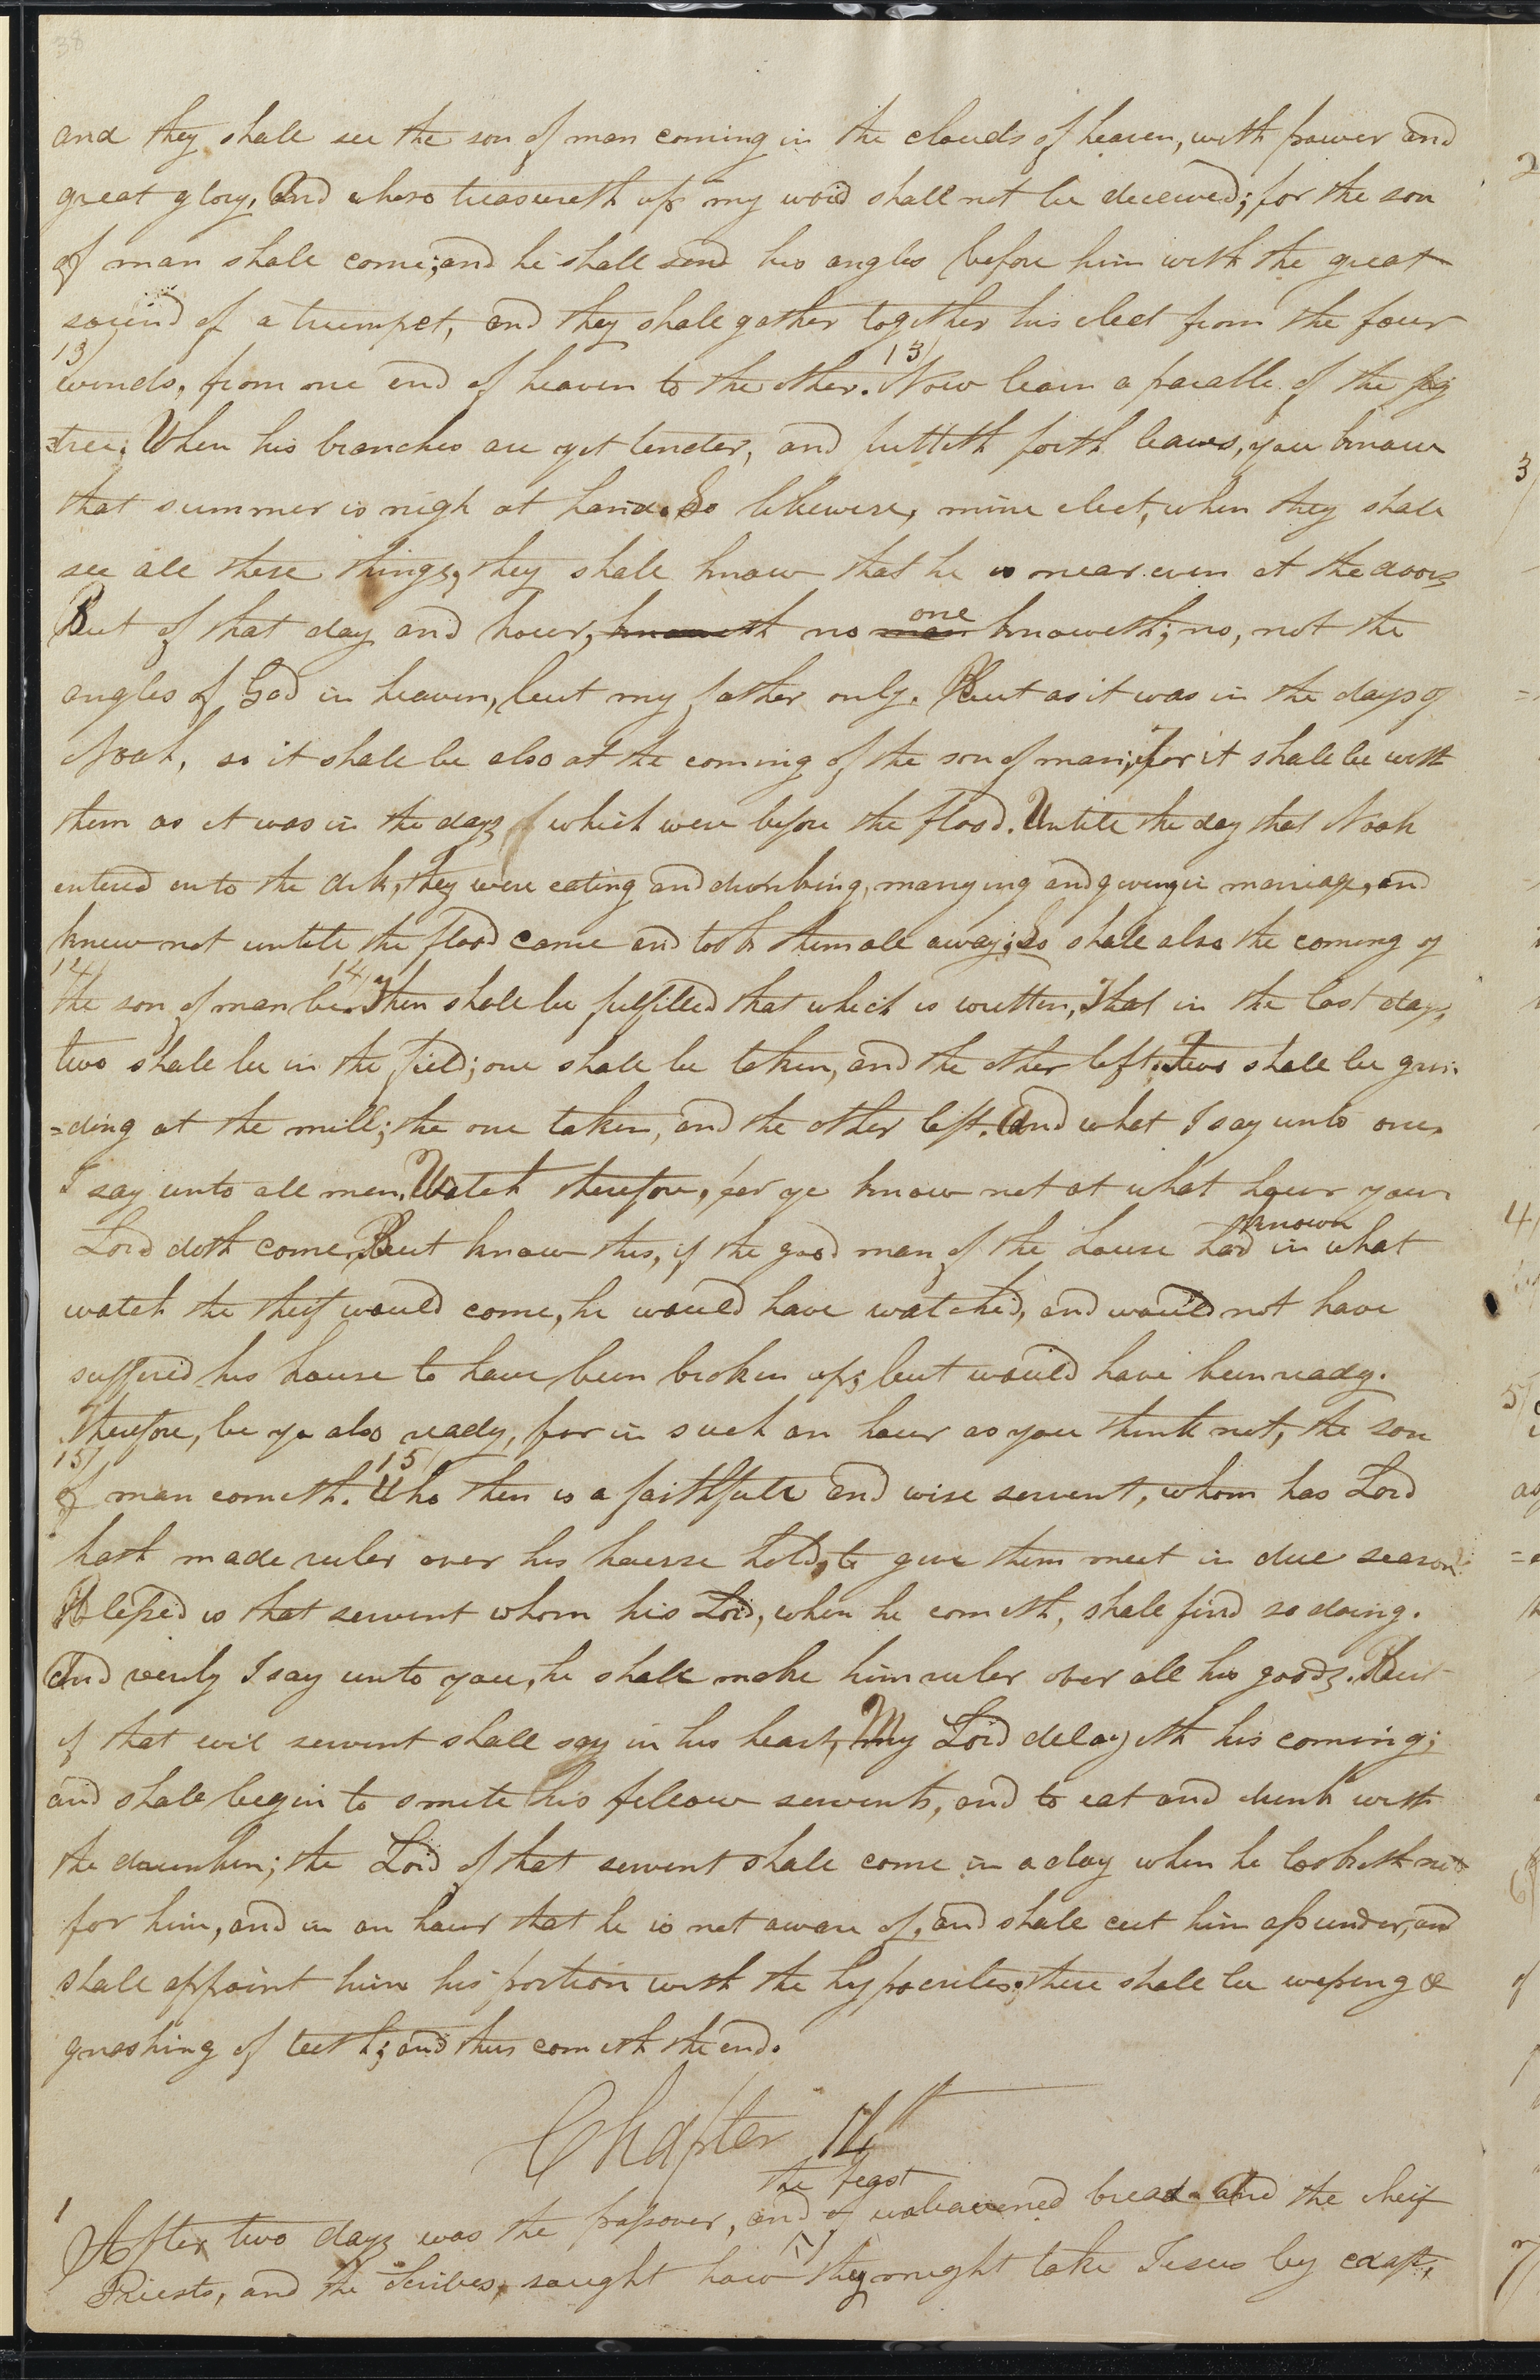 38
and they shall see the son of man coming in the clouds of heaven, with power and
great glory. And whoso treasureth up my word shall not be deceived; for the son
of man shall come; and he shall send his angles before him with the great
sound of a trumpet, and they shall gather together his elect from the four
13/ 13/
winds, from one end of heaven to the other. Now learn a parable of the fig
=tree. When his branches are yet tender, and putteth forth leaves, you know
that summer is nigh at hand. So likewise, mine elect, when they shall
see all these things, they shall know that he is near even at the doors
But of that day and hour, knoweth no man one knoweth; no, not the
angles of God in heaven, but my father only. But as it was in the days of
Noah, so it shall be also at the coming of the son of man; For it shall be with
them as it was in the days which were before the flood. Untill the day that Noah
entered into the Ark, they were eating and drinking, marrying and giving in marriage, and
knew not untill the flood came and took them all away; So shall also the coming of
14/ 14/
the son of man be. Then shall be fulfilled that which is written, That in the last days,
two shall be in the field; one shall be taken, and the other left. Two shall be grin
=ding at the mill; the one taken, and the other left. And what I say unto one,
I say unto all men. Watch therefore, for ye know not at what hour your
Lord doth come. But know this, if the good man of the house had known in what
watch the theif would come, he would have watched, and would not have
suffered his house to have been broken up; but would have been ready.
Therefore, be ye also ready, for in such an hour as you think not, the son
15/ 15/
of man cometh. Who then is a faithfull and wise servent, whom has Lord
hath made ruler over his house hold, to give them meet in due season
Blessed is that servent whom his Lord, when he cometh, shall find so doing.
And verily I say unto you, he shall make him ruler over all his goods. But
if that evil servent shall say in his heart, My Lord delayeth his coming;
and shall begin to smite his fellow servents, and to eat and drink with
the drunken; the Lord of that servent shall come in a day when he looketh not
for him, and in an hour that he is not aware of, and shall cut him assunder, and
shall appoint him his portion with the hypocrites; there shall be weping &
gnashing of teeth; and thus cometh the end.
Chapter 12th
the feast
1 After two days was the passover, and of unleavened bread. And the cheif
Priests, and the Scribes, sought how they might take Jesus by craft,